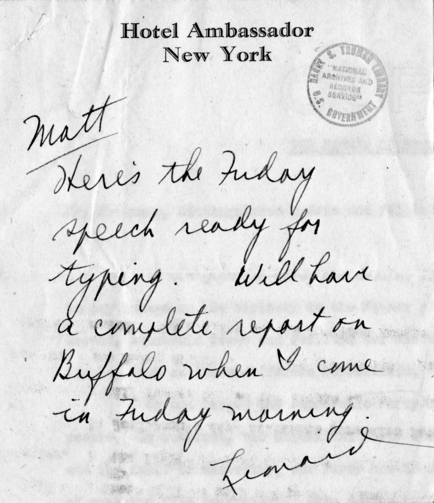 Hotel Ambassador
New York
HARRY S. TRUMAN LIBRARY
"NATIONAL
ARCHIVES AND
RECORDS
SERVICE"
U.S. GOVERNMENT
Matt
Here's the Friday
speech ready for
typing. Will have
a complete report on
Buffalo when I come
in Friday morning.
Leonard